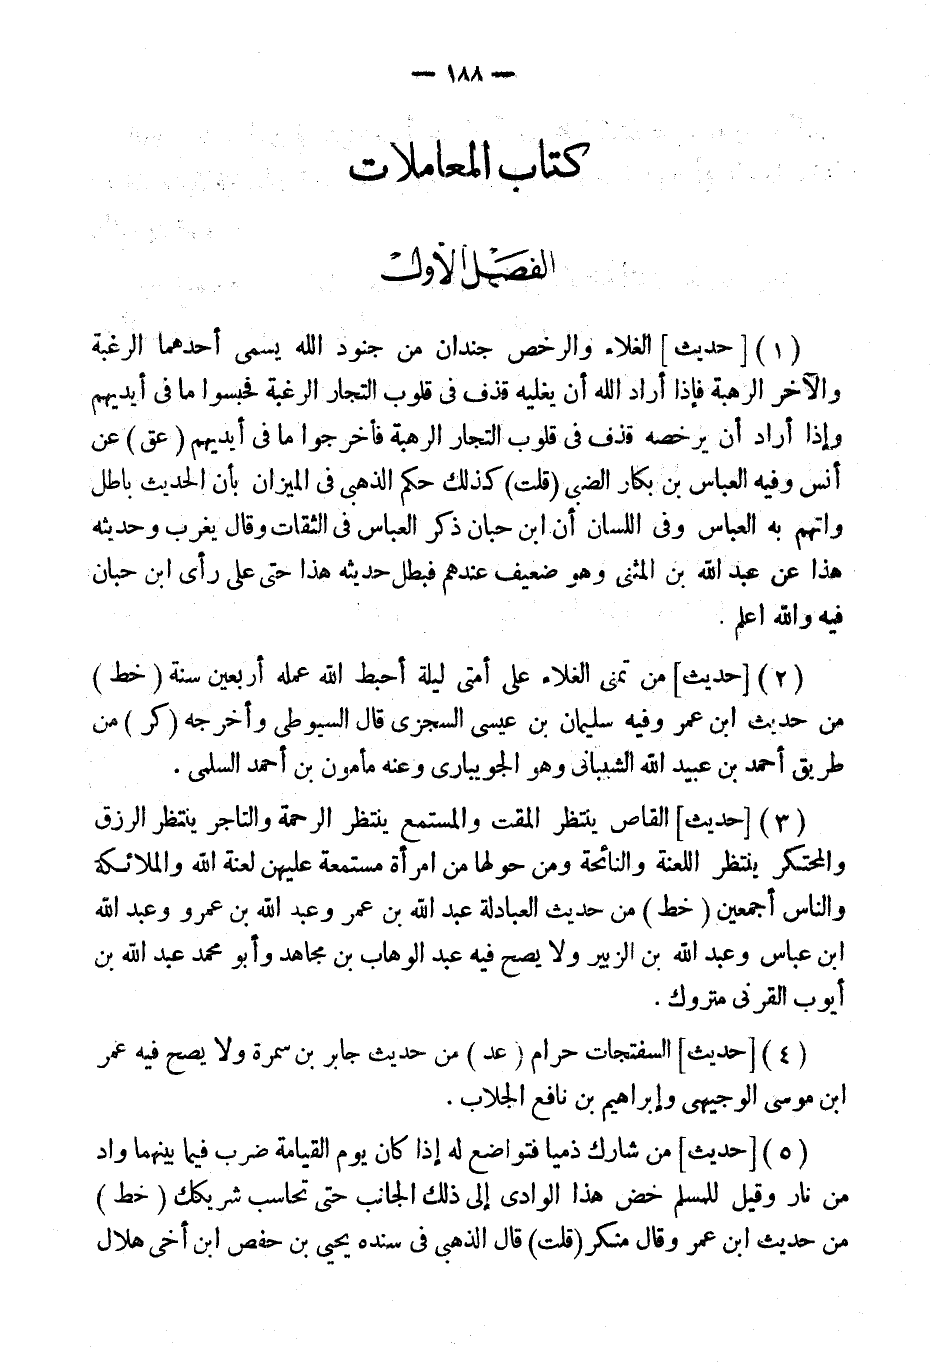 — ١٨٨ —
كتاب المعاملات
الفصل الأول
( ١ ) [ حديث ] الغلاء والرخص جندان من جنود الله يسمى أحدهما الرغبة
والآخر الرهبة فإذا أراد الله أن يغليه قذف فى قلوب التجار الرغبة فحبسوا ما فى أيديهم
وإذا أراد أن يرخصه قذف فى قلوب التجار الرهبة فأخرجوا ما فى أيديهم ( عق ) عن
أنس وفيه العباس بن بكار الضبى (قلت) كذلك حكم الذهبى فى الميزان بأن الحديث باطل
واتهم به العباس وفى اللسان أن ابن حبان ذكر العباس فى الثقات وقال يغرب وحديثه
هذا عن عبد الله بن المثنى وهو ضعيف عندهم فبطل حديثه هذا حتى على رأى ابن حبان
فيه والله اعلم .
( ٢ ) [حديث] من تمنى الغلاء على أمتى ليلة أحبط الله عمله أربعين سنة ( خط )
من حديث ابن عمر وفيه سليمان بن عيسى السجزى قال السيوطى وأخرجه ( كر ) من
طريق أحمد بن عبيد الله الشيبانى وهو الجويبارى وعنه مأمون بن أحمد السلمى .
( ٣ ) [حديث] القاص ينتظر المقت والمستمع ينتظر الرحمة والتاجر ينتظر الرزق
والمحتكر ينتظر اللعنة والنائحة ومن حولها من امرأة مستمعة عليهن لعنة الله والملائكة
والناس أجمعين ( خط ) من حديث العبادلة عبد الله بن عمر وعبد الله بن عمرو وعبد الله
ابن عباس وعبد الله بن الزبير ولا يصح فيه عبد الوهاب بن مجاهد وأبو محمد عبد الله بن
أيوب القرنى متروك .
( ٤ ) [حديث] السفتجات حرام ( عد ) من حديث جابر بن سمرة ولا يصح فيه عمر
ابن موسى الوجيهى وإبراهيم بن نافع الجلاب .
( ٥ ) [حديث] من شارك ذميا فتواضع له إذا كان يوم القيامة ضرب فيما بينهما واد
من نار وقيل للمسلم خض هذا الوادى إلى ذلك الجانب حتى تحاسب شريكك ( خط )
من حديث ابن عمر وقال منكر (قلت) قال الذهبى فى سنده يحيى بن حفص ابن أخى هلال